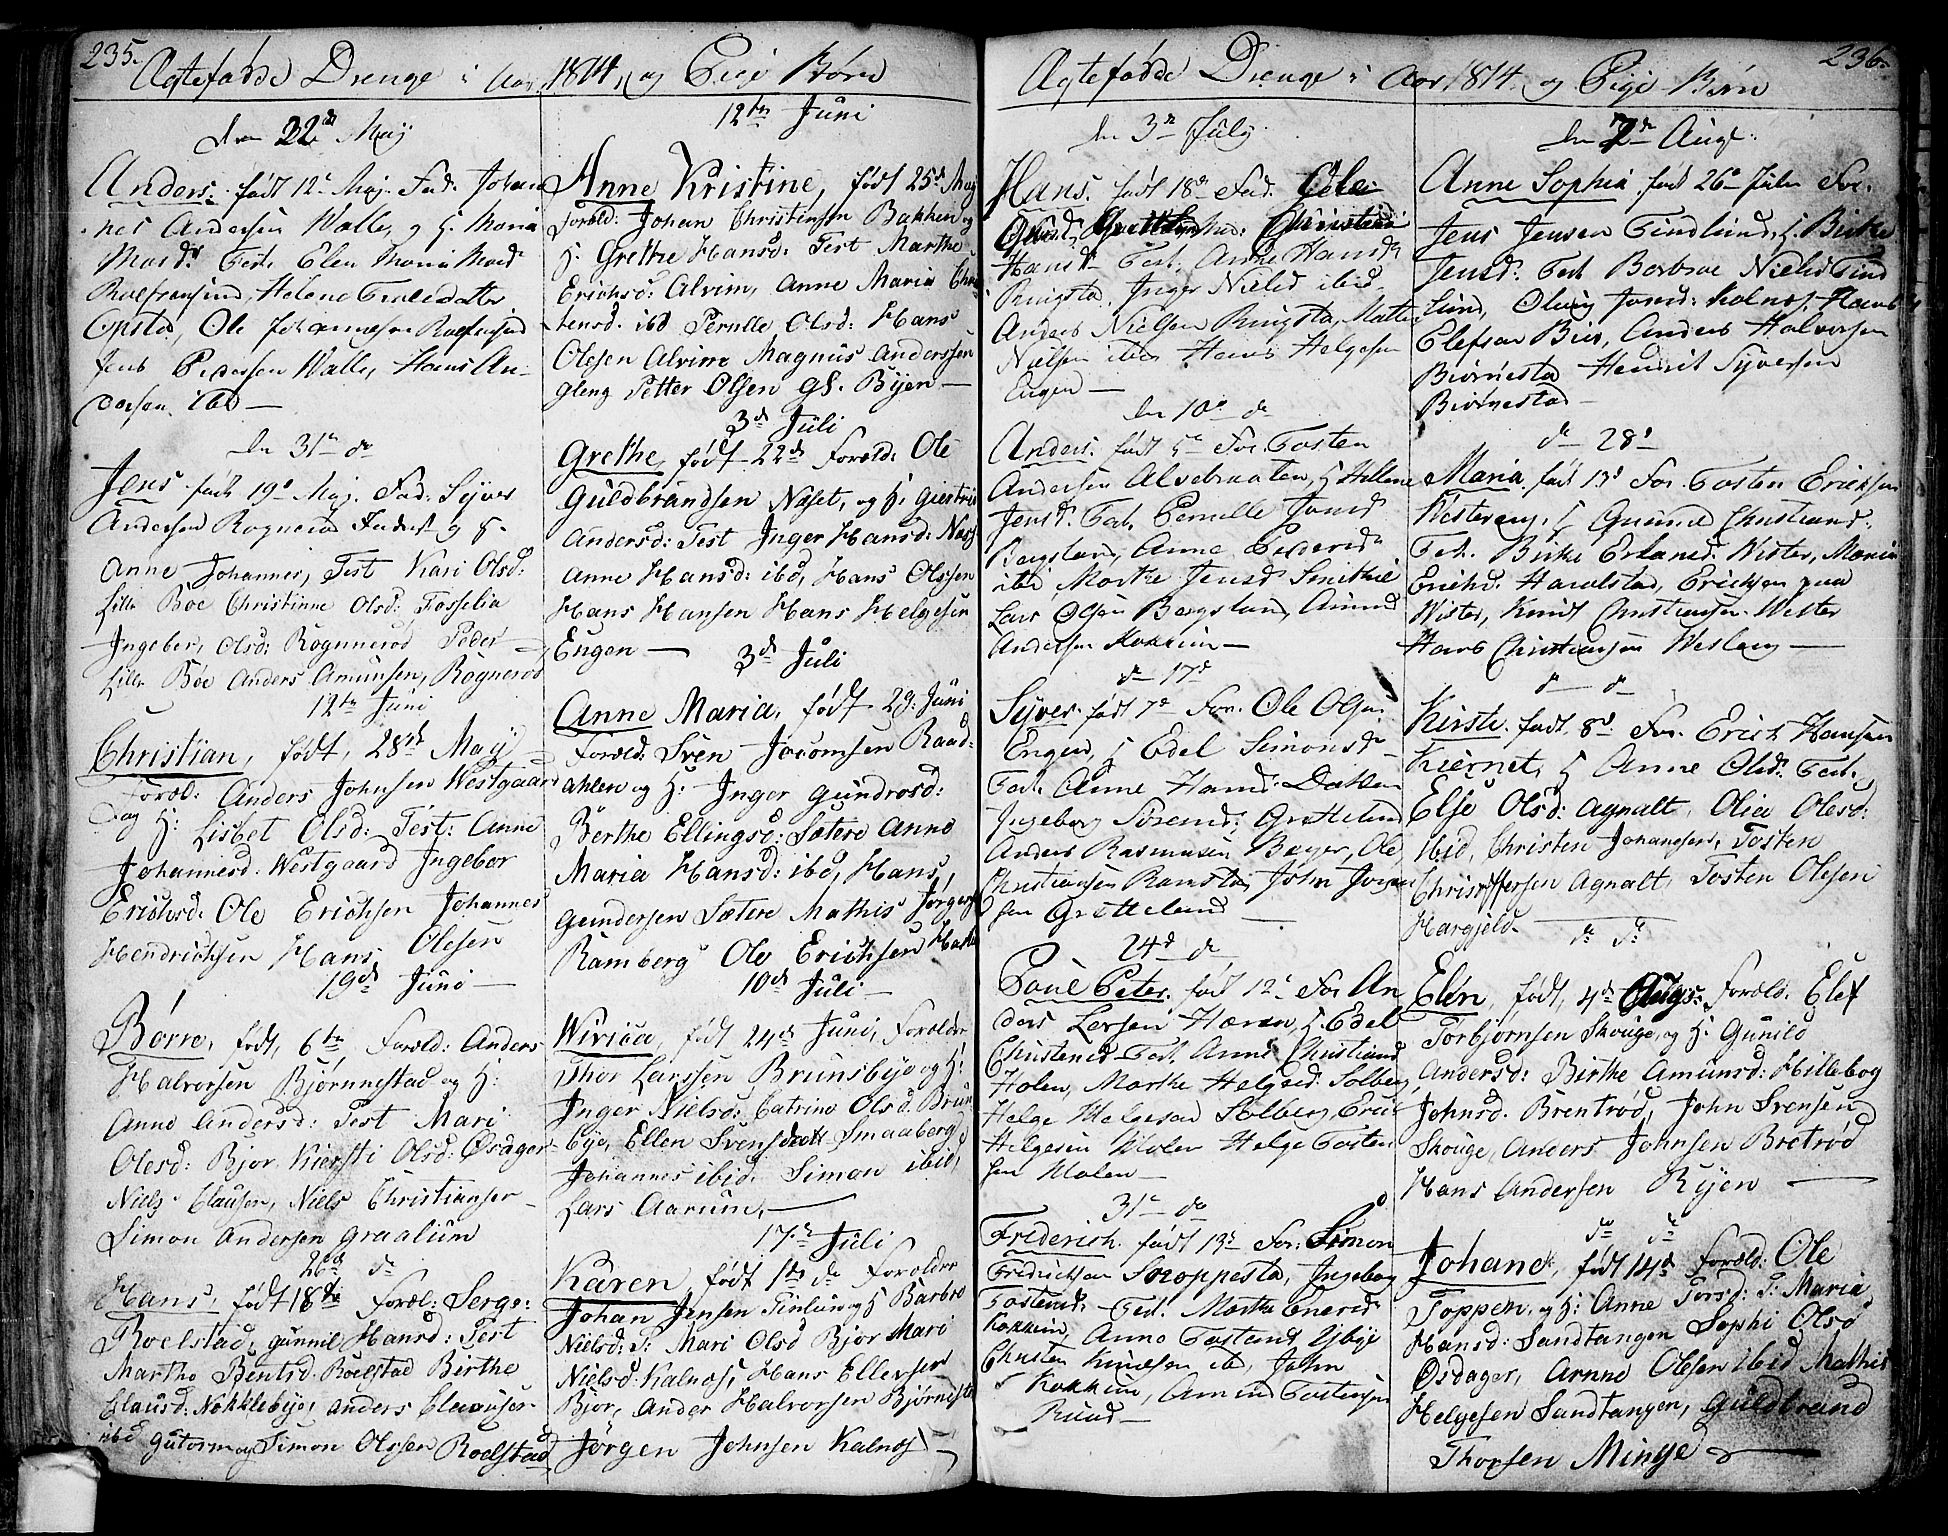 235.
Ægtefødde Drenge i Aar 1814, og Pige Børn
den 22de May
Anders. født 12. Maj. Fad. Johan
nes Andersen Walle, og H. Maria
Madsd. Test. Elen Maria Madsd
Roelfsrusind, Helene Trulsdatter
Opstad, Ole Johannesen
Jens Pedersen Walle, Hans An-
dersen ibd —
den 31te do
Jens født 19de Maj. Fad: Syver
Andersen Rognerød og H.
Anne Johannes, Test Kari Olsd:
Lille Boe Christinne Olsd: Fosselia
Ingebor, Olsd: Rognnerød Peder
Lille Böe Anders Amunsen, Rognerød
12te Juni
Christian, født, 28de Maÿ
Foræld: Anders Johnsen Westgaard
og H: Lisbet Olsd: Test: Anne
Johannesd: Westgaard Ingebor
Erichsd: Ole Erichsen Johannes
Hendrichsen Hans Olesen
19de Juni —
Børre, født, 6te Foræld: Anders
Halvorsen Bjørnnestad og H:
Anne Andersd: Test Mari
Olesd: Bjor. Kiersti Olsd: Øsdager
Niels Clausen, Niels Christiansen
Simon Andersen Graalium
26de do
Hans, født 18de Foræl: Serge:
Roelstad, gunnil Hansd: Test
Marthe Bentsd. Roelstad Birthe
Clausd: Nokkleby, anders Clausen
ibd Gutorm og Simon Olssen Roelstad
12te Juni
Anne Kristine, født 25de Maj
foræld: Johan Christensen Bakken og
H. Grethe Hansd: Test Marthe
Erichsd: Alvim, Anne Maria Chris
tensd. ibd Pernlle Olsd: Hans
Olesen Alvim Magnus Anderssen
gleng Petter Olsen gl. Byen —
3de Juli
Grethe, født 22de Foræld: Ole
Guldbrandsen Næset, og H: Giertrud
Andersd: Test Inger Hansd: Næs
Anne Hansd: ibd, Hans Olssen
Hans Hansen Hans Helgesen
Engen —
3de Juli
Anne Maria, født 29: Juni
Foræld: Sven Jocomsen Raad-
ahlen og H: Inger Gundrosd:
Berthe Ellingsd: Sætere Anne
Maria Hansd: ibd, Hans,
Gundersen Sætere Mathis Jørgens
Ramberg Ole Erichsen
10de Juli —
Wivica, født 24de Juni, Forælder
Thor Larssen Brunsbye og H:
Inger Nielsd: Catrine Olsd. Brun
bye, Ellen Svensdatt Smaaberg,
Johannes ibid. Simon ibid,
Lars Aarum, —
17de Juli
Karen, født 1de do Forælder
Johan Jensen Tinlun og H Barbro
Nielsd: T: Mari Olsd Bjor Mari
Nielsd: Kalnæs, Hans Ellevsen
Bjor, Ander Halvorsen Bjørnest
Jørgen Johnsen Kalnæs —
236.
Ægtefødde Drenge i Aar 1814. og Pige Børn
den 3de July
Hans. født 18de Fad. Ole
Christine
Hansd Test. Anne Hansd
Ringstad, Inger Nielsd ibid.
Anders Nielsen Ringstad,
Nielsen ibid Hans Helgesen
Engen —
den 10de do
Anders. født 5te For. Tosten
Andersen Alvebraaten, H Hellene
Jensd. Test. Pernille Jonsd
Bergsland, Anne Pedersd
ibd Marthe Jensd Smithie
Lars Olsen Bergsland, Amund
Andersen Kokkim —
do 17de
Syver. født 7de For. Ole Olsen
Engen, H Edel Simonsd
Test. Anne Hansd: Dakken
Ingeborg Sørensd; Grøttelund
Anders Rasmussen Beyer, Ole
Christiansen Ramstad, John Joren
sen Grøttelund —
24de do
Poul Peter. født 12te For An
ders Larsen Hæren, H. Edel
Christensd Test. Anne Christiansd
Holen, Marthe Helgesd. Solberg
Helge Helgesen Solberg,
Helgesen Molen Helge Tosten
sen Molen —
31te do
Frederich. født 13de For: Simon
Fredricksen Soroppestad, Ingebor
Tostensd. Test. Marthe Enersd
Kokkim, Anne Tostensd Isbye
Christen Knudsen ibd, John
Kokkim, Amund Tostensen
Ruud —
den 2de Aug:
Anne Sophia født 26de July For.
Jens Jensen Tindlund, H. Birthe
Jensd: Test Barbroe Nielsd Tind
lund, Olaug Jonsd: Kalnæs, Hans
Elefsen Bior, Anders Halvorsen
Biørnestad Hendrik Syversen
Biørnestad —
do 28de
Maria. født 13de For. Tosten Ericksen
Westereng, H Gunnil Christiansd.
Test. Birthe Erlandsd. Wister, Maria
Ericksd. Haralstad, Ericksen paa
Wister, Knud Christiansen Wister
Hans Christiansen Westeng —
do do
Kirsti. født 8de For. Erick Hansen
Kiernet, H Anne Olsd. Test.
Else Olsd: Agnalt, Olia Olesd:
ibid, Christen Johansen, Tosten
Christoffersen Agnalt, Tosten Olesen
Hargjeld —
do do
Elen, født, 4de Augs: Foræld: Elef
Torbjørnsen Skouge, og H: Gunild
Andersd: Birthe Amunsd: Hillebog
Johnsd. Brentrød, John Svensen
Skouge, Anders Johnsen Bretrød
Hans Andersen Ryen —
do do
Johane, født 14de Foræld: Ole
Toppen, og H: Anne Torsd: T: Maria
Hansd: Sandtangen Sophi Olsd
Øsdager, Arnne Olesen ibid Mathis
Helgesen Sandtangen, Guldbrand
Thorsen Minge —